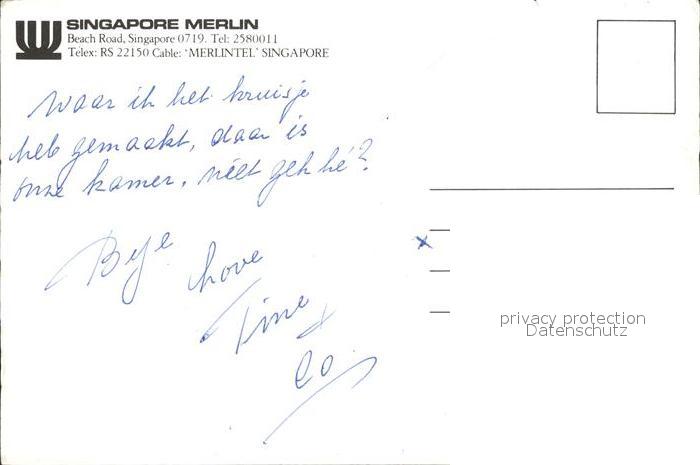 SINGAPORE MERLIN
Beach Road, Singapore 0719. Tel: 2580011
Telex: RS 22150 Cable: 'MERLINTEL' SINGAPORE
Waar ik het kruisje
heb gemaakt, daar is
onze kamer, niet gek hé?
Bye
Love
Tine
Co
x
privacy protection
Datenschutz